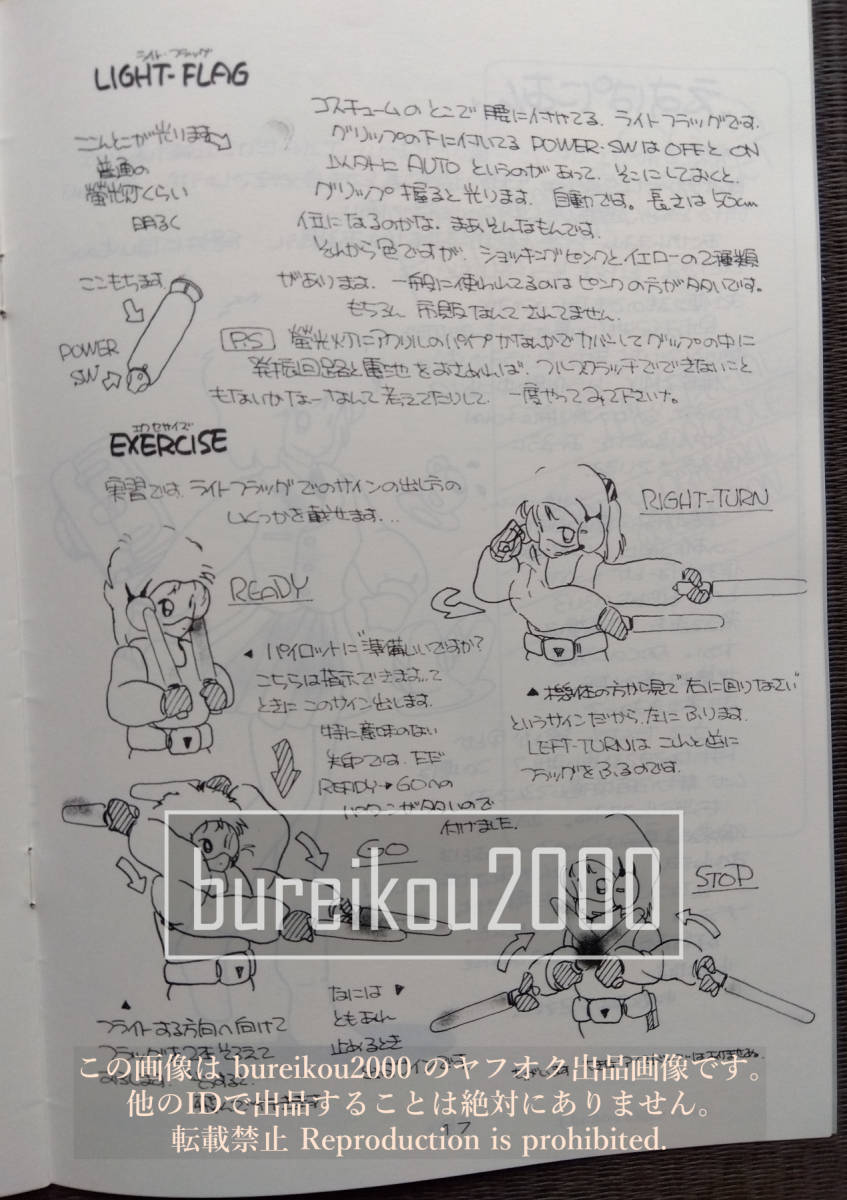 ライト・フラッグ
LIGHT-FLAG
コスチュームのとこで腰に付けてる、ライトフラッグです。
グリップの下に付いてる POWER・SWはOFFとON
以外に AUTO というのがあって、そこにしておくと、
グリップ握ると光ります。自動です。長さは50cm
位になるのかな。まあそんなもんです。
それから色ですが、ショッキングピンクとイエローの2種類
があります。一般に使われてるのはピンクの方が多いです。
もちろん 市販なんてされてません。
こんとこが光ります
普通の
螢光灯くらい
明るく
ここもちます。
POWER
SW
PS 螢光灯にアクリルのパイプかなんかでカバーしてグリップの中に
発振回路と電池をおさめれば、フルスクラッチでできないこと
もないかなーなんて考えてたりして、一度やってみて下さいな。
エクセサイズ
EXERCISE
実習では、ライトフラッグでのサインの出し方の
いくつかを載せます...
READY
パイロットに"準備いいですか?
こちらは指示できます"って
ときに このサイン出します。
特に意味のない
矢印では、ただ
READY→GOへの
パターンが多いので
付けました。
RIGHT-TURN
▲機体の方から見て"右に回りなさい"
というサインだから、左にふります。
LEFT-TURNは これと逆に
フラッグをふるのです。
GO
▲
フライトする方向へ向けて
STOP
なには
ともあれ
止めるとき
bureikou2000
この画像は bureikou2000 のヤフオク出品画像です。
他のIDで出品することは絶対にありません。
転載禁止 Reproduction is prohibited.
17